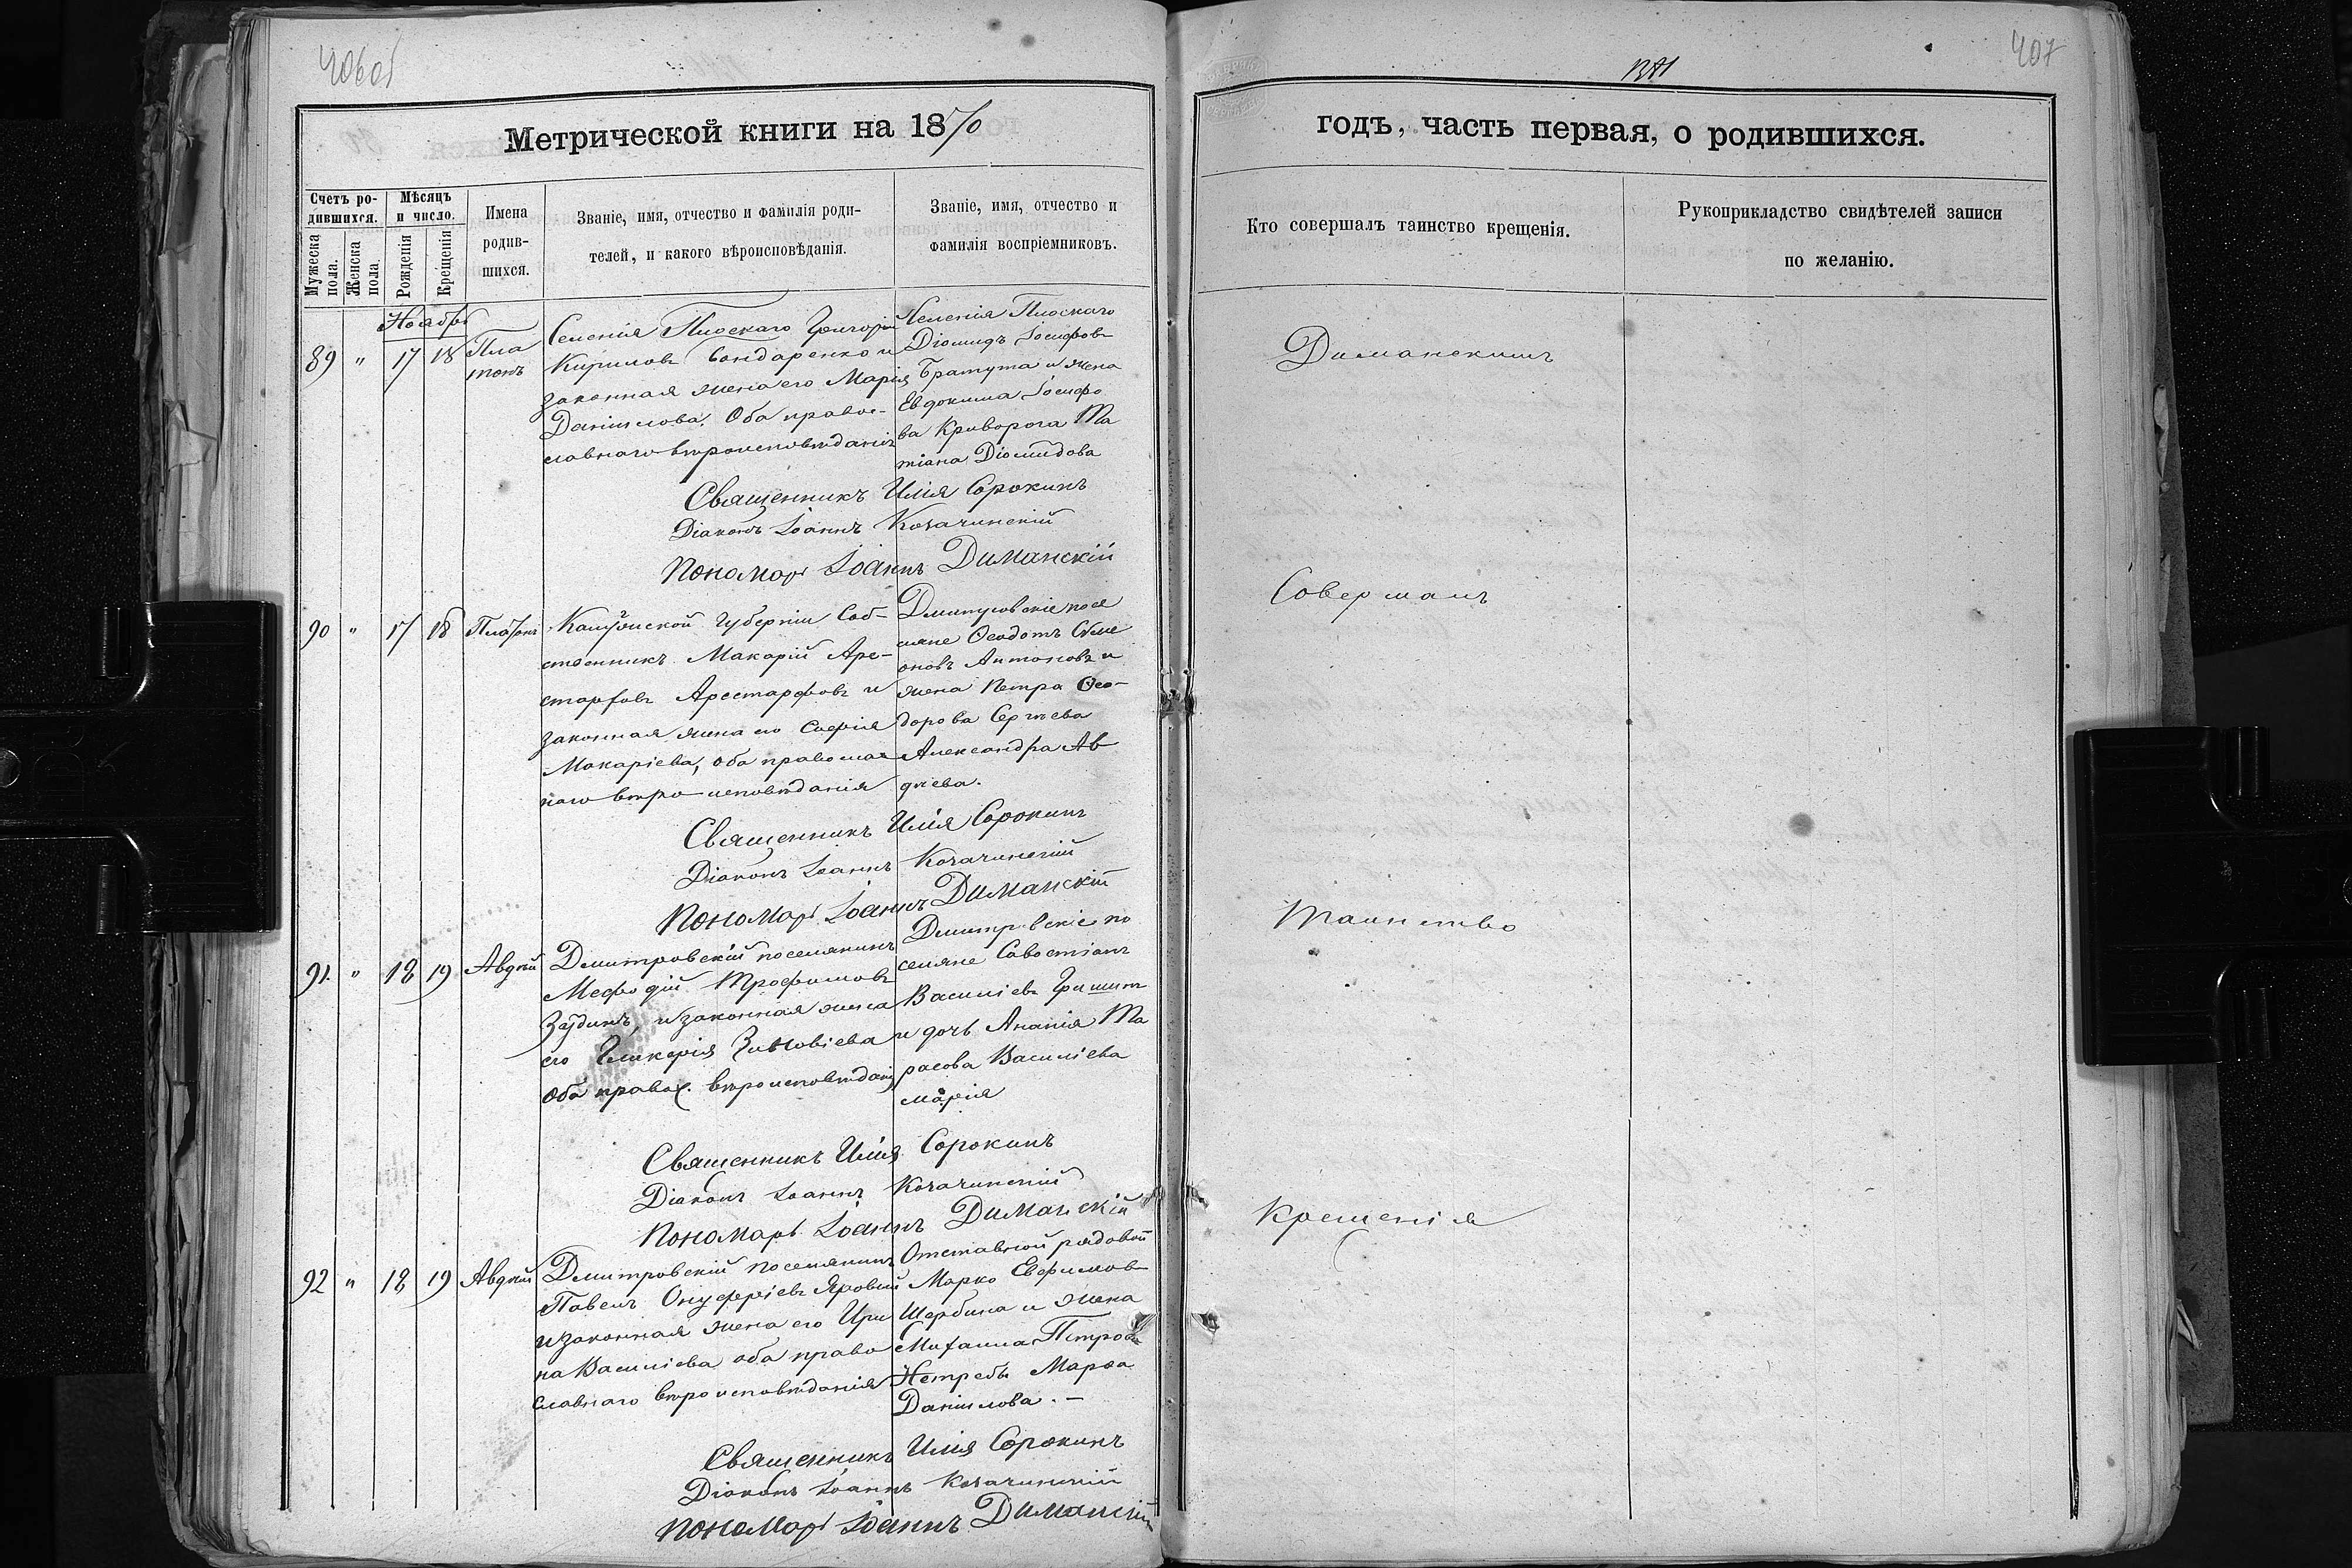 406об
407
Метрической книги на 1870
годъ, часть первая, о родившихся.
Счетъ ро-
дившихся.
Мужеска
пола.
Женска
пола.
Мѣсяцъ
и число.
Рожденія
Крещенія
Имена
родив-
шихся.
Званіе, имя, отчество и фамилія роди-
телей, и какого вѣроисповѣданія.
Званіе, имя, отчество и
фамилія воспріемниковъ.
Кто совершалъ таинство крещенія.
Рукоприкладство свидѣтелей записи
по желанію.
Ноябрь
89 " 17 18
Пла
тонъ
Селенія Плоскаго Григорій
Кириловъ Бондаренко и
законная жена его Марія
Даніилова. Оба правос-
лавнаго вѣроисповѣданія
Селенія Плоскаго
Діомидъ Іосифовъ
Братута и жена
Евдокима Іосифо
ва Криворога Та
тіана Діомидова
Священникъ Илія Сорокинъ
Діаконъ Іоаннъ Козачинскій
Пономарь Іоаннъ Диманскій
90 " 17 18 Платонъ
Калужской Губерніи Соб-
ственникъ Макарій Аре-
старховъ Арестарфовъ и
законная жена его Софія
Макаріева, оба православ
наго вѣроисповѣданія
Дмитровскіе посе
ляне Ѳеодотъ Симе
оновъ Антоновъ и
жена Петра Ѳео-
дорова Сергѣева
Александра Ав
дѣева.
Священникъ Илія Сорокинъ
Діаконъ Іоаннъ Козачинскій
Пономарь Іоаннъ Диманскій
91. " 18 19 Авдѣй
Дмитровскій поселянинъ
Мефодій Трофимовъ
и законная жена
его Гликерія Зиновіева
Оба правос. вѣроисповѣданія
Дмитровскіе по
селяне Савостіанъ
Василіевъ
и дочь Ананія Та
расова Василіева
Марія
Священникъ Илія Сорокинъ
Діаконъ Іоаннъ Козачинскій
Пономарь Іоаннъ Диманскій
92 " 18 19 Авдѣй
Дмитровскій поселянинъ
Павелъ Онуфріевъ Яровій
и законная жена его Ири
на Василіева оба право
славнаго вѣроисповѣданія
Отставной рядовой
Марко Евфимовъ
Щербина и жена
Михаила Петрова
Нетребы Марѳа
Даніилова. –
Священникъ Илія Сорокинъ
Діаконъ Іоаннъ Козачинскій
Пономарь Іоаннъ Диманскій
Диманскимъ
Совершалъ
Таинство
Крещенія